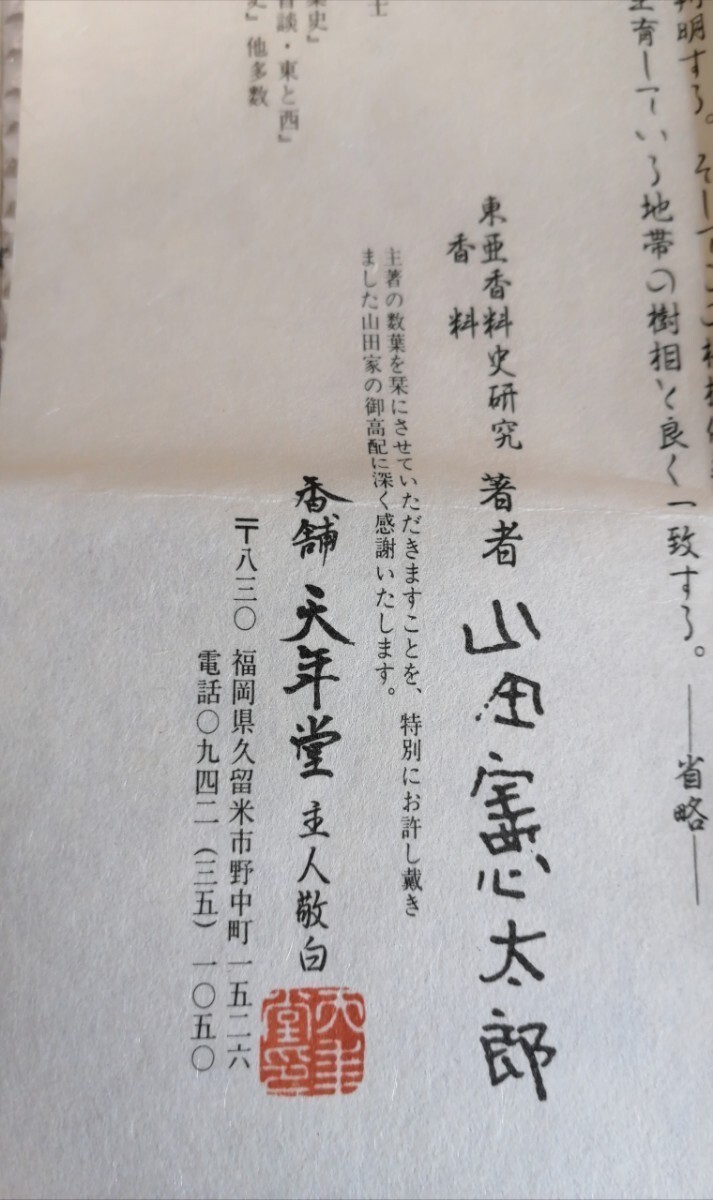 判明する。そしてここ
生育している地帯の樹相と良く一致する。――省略――
東亜香料史研究 著者 山田憲太郎
香料
主著の数葉を栞にさせていただきますことを、特別にお許し戴き
ました山田家の御高配に深く感謝いたします。
士
史』
談・東と西』
』他多数
香舗 天年堂 主人敬白
〒八三〇 福岡県久留米市野中町一五二六
電話〇九四二(三五)一〇五〇
天年堂印